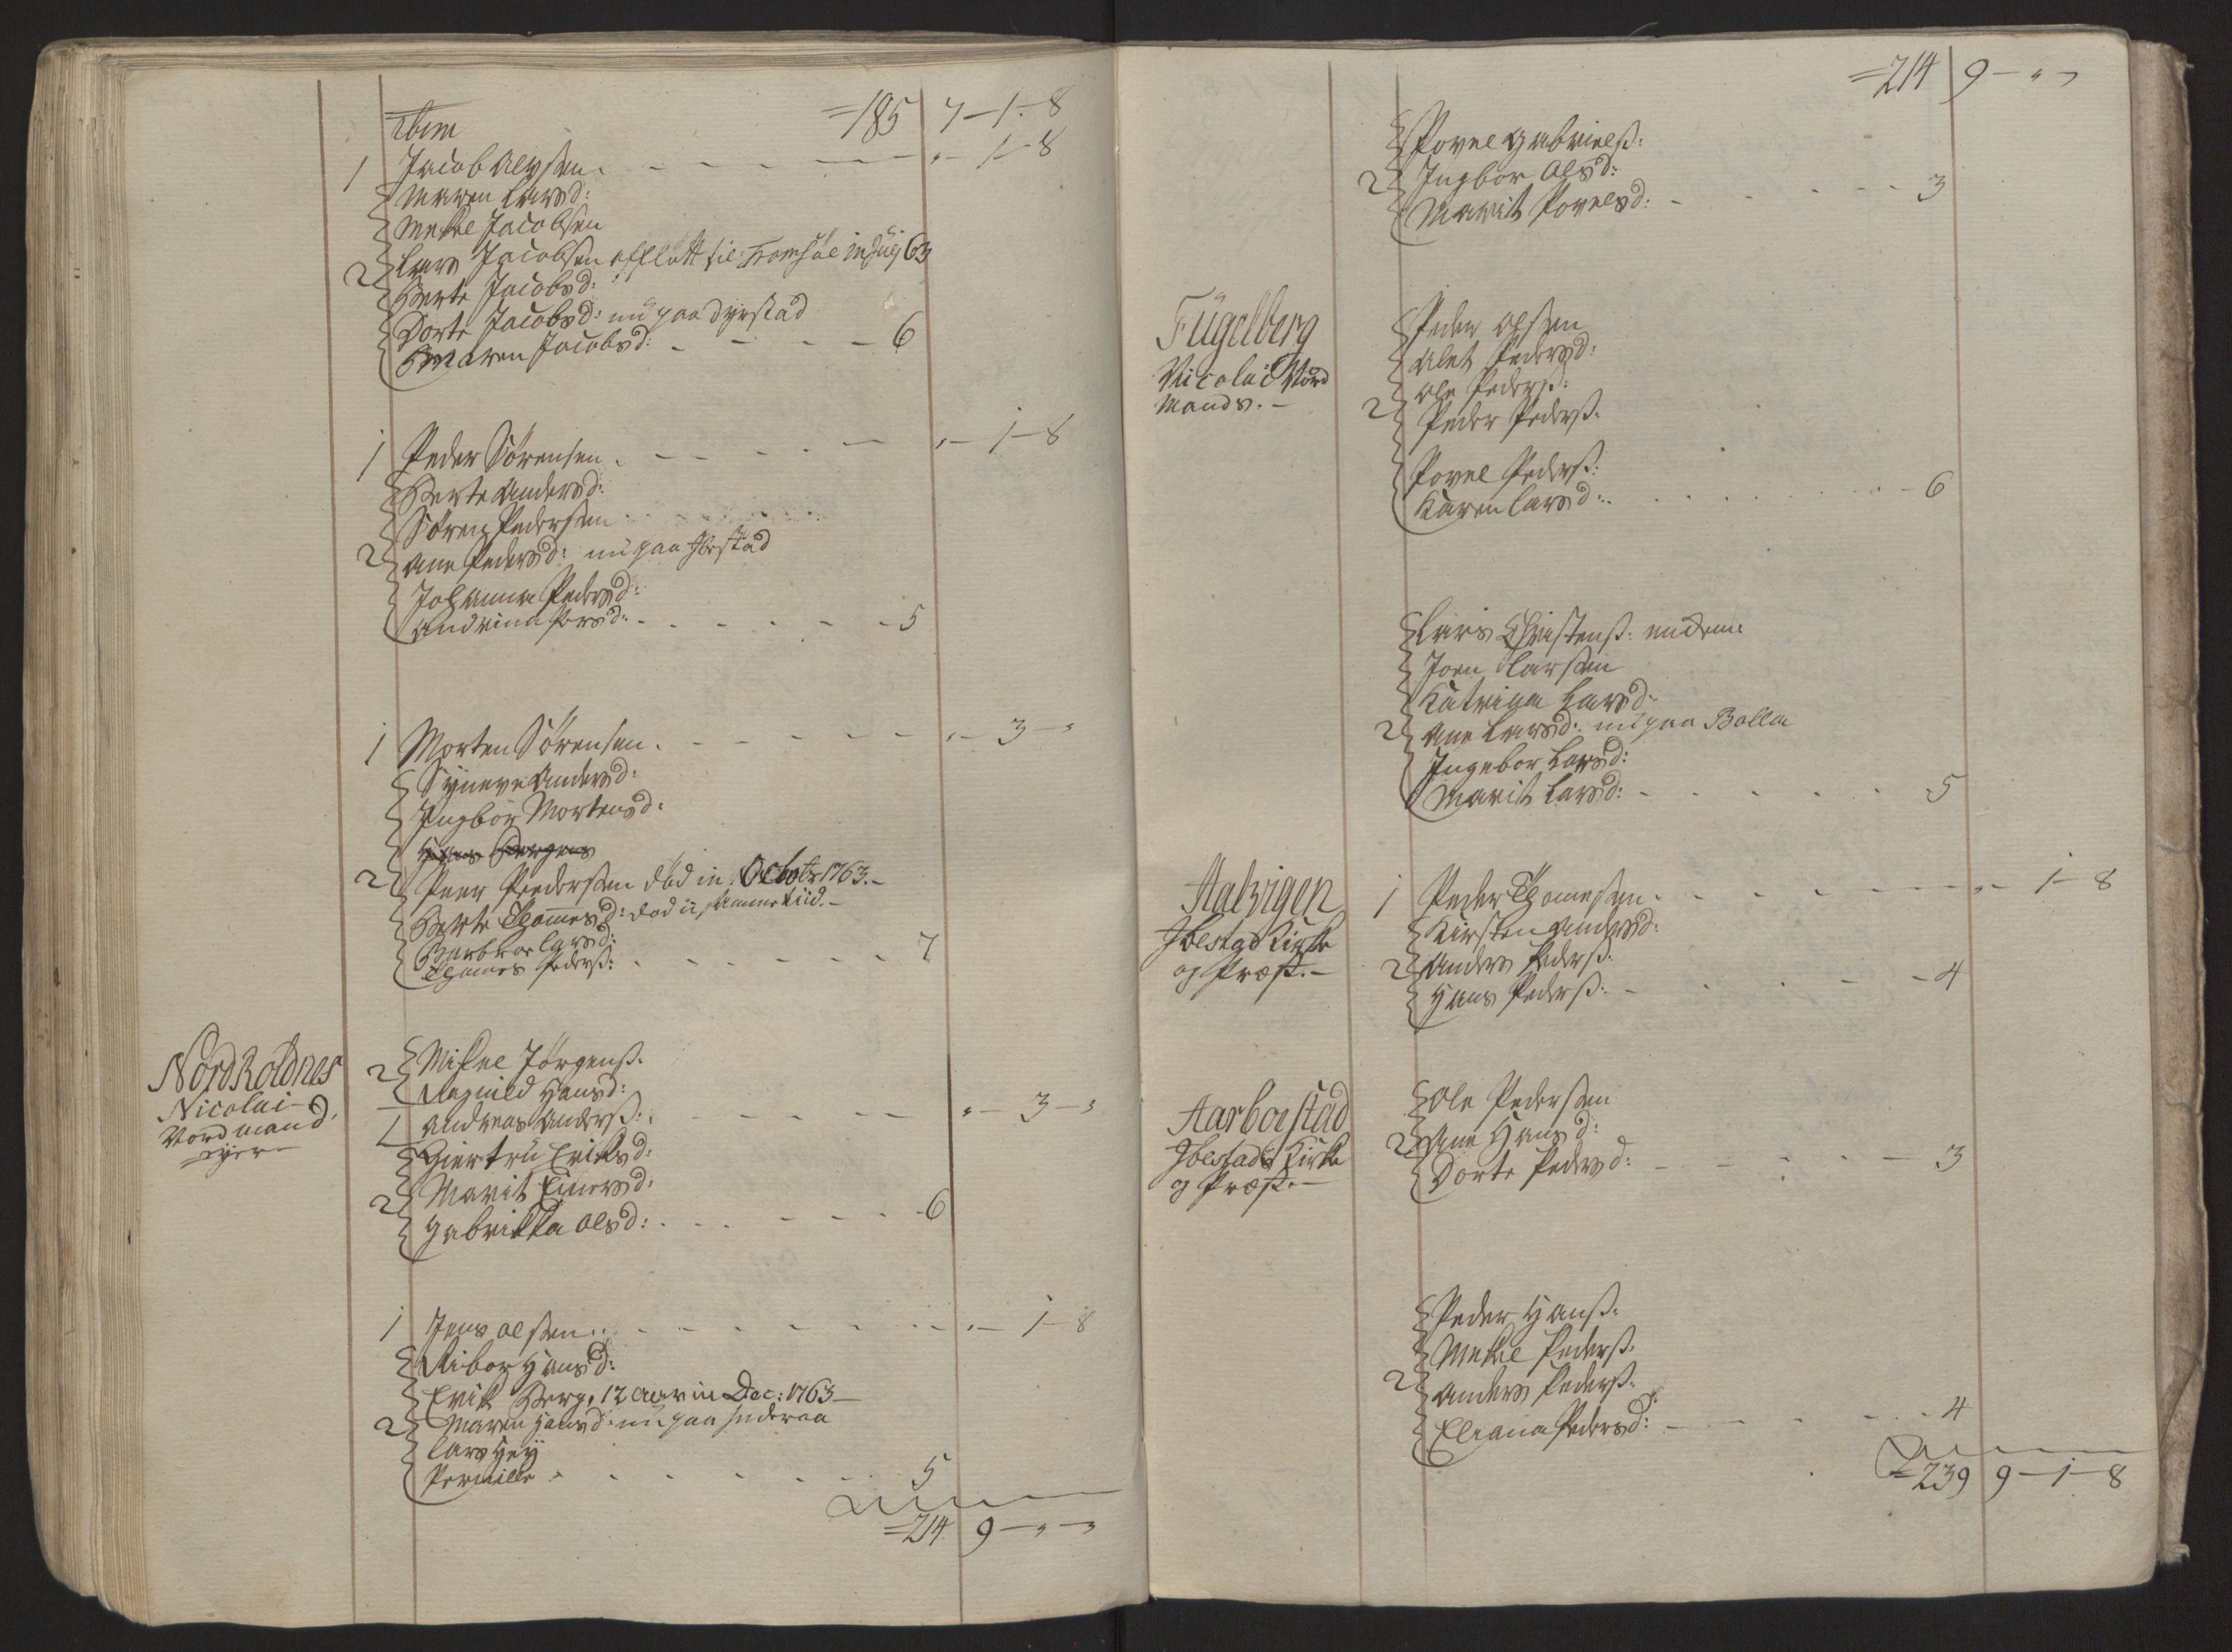 Ibm =185 7-1-8
1 Jacob Alysen. - - - - - „-1-8
Maren Larsd:
Mikkel Jacobsen
Lars Jacobsen afflöt til Tromsöe in Julj 63
2 Berte Jacobsd:
Dorte Jacobsd: nu paa dyrstad
Maren Jacobsd: - - - - 6
1 Peder Sörensen. - - - - „-1-8
Berte Andersd:
Sören Pedersen
2 Ane Pedersd: nu paa Ibestad
Johanna Pedersd:
Andrina Persd: - - - - - 5
1 Morten Sörensen. - - - - - „-3-„
Syneve Andersd:
Ingbor Mortensd:
2 Peer Pedersen död in Octobr 1763.-
Berte Thomesd: död ii samme tiid.-
Barbroe Larsd:
Thomes Peders: - - - - - 7
Nordkoldnes
Nicolai
Nordmand
eyer
2 Mikkel Jörgens:
Ragnild Hansd:
1 Andreas Anders: - - - - „-3-„
Giertru Eriksd:
Marit Einersd:
2 Gabrikka Olsd: - - - - - 6
1 Jens Olsen. - - - - - - „-1-8
Ribor Hansd:
Erik Berg. 12 Aar in Dec: 1763-
2 Maren Hansd: nu paa Inderaa
Lars Hey
Pernille - - - - - 5
=214 9-„-„
=214 9-„-„
Povel Gabriels:
2 Ingbor Olsd:
Marit Povelsd: - - - - 3
Fugelberg
Nicolai Nord
Mands.-
Peder Olsen
Alet Pedersd:
Ole Peders:
2 Peder Peders:
Povel Peders:
Karen Larsd: - - - - - 6
Lars Christens:
Joen Larsen
Katrina Larsd:
2 Ane Larsd: nu paa Bolla
Ingebor Larsd:
Marit Larsd: - - - - - 5
Aalvigen
Ibestad Kirke
og Præst.-
1 Peder Thomesen. - - - - - „-1-8
Kirsten Andersd:
2 Anders Peders:
Hans Peders: - - - - 4
Aarborstad
Ibestads Kirke
og Præst.-
Ole Pedersen
2 Ane Hansd:
Dorte Pedersd: - - - - - 3
Peder Hans:
Mikkel Peders:
2 Anders Peders:
Eliana Pedersd: - - - - 4
=239 9-1-8